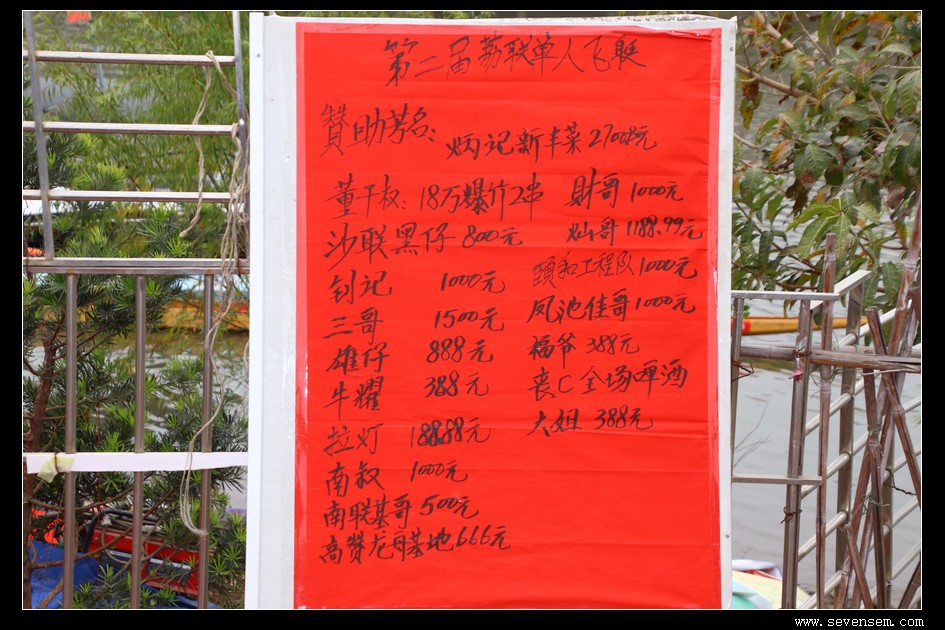 第二届荔联单人飞艇
贊助芳名:
炳记新丰菜27008元
董干板:18万爆竹2串 財哥1000元
沙联黑仔800元 灿哥1188.99元
钊记 1000元 頤和工程队1000元
三哥 1500元 凤池佳哥1000元
雄仔 888元 福爷388元
牛耀 388元 丧C全场啤酒
拉灯 元 大姐388元
南叔 1000元
南联基哥500元
高赞龙舟基地666元
www.sevensem.com